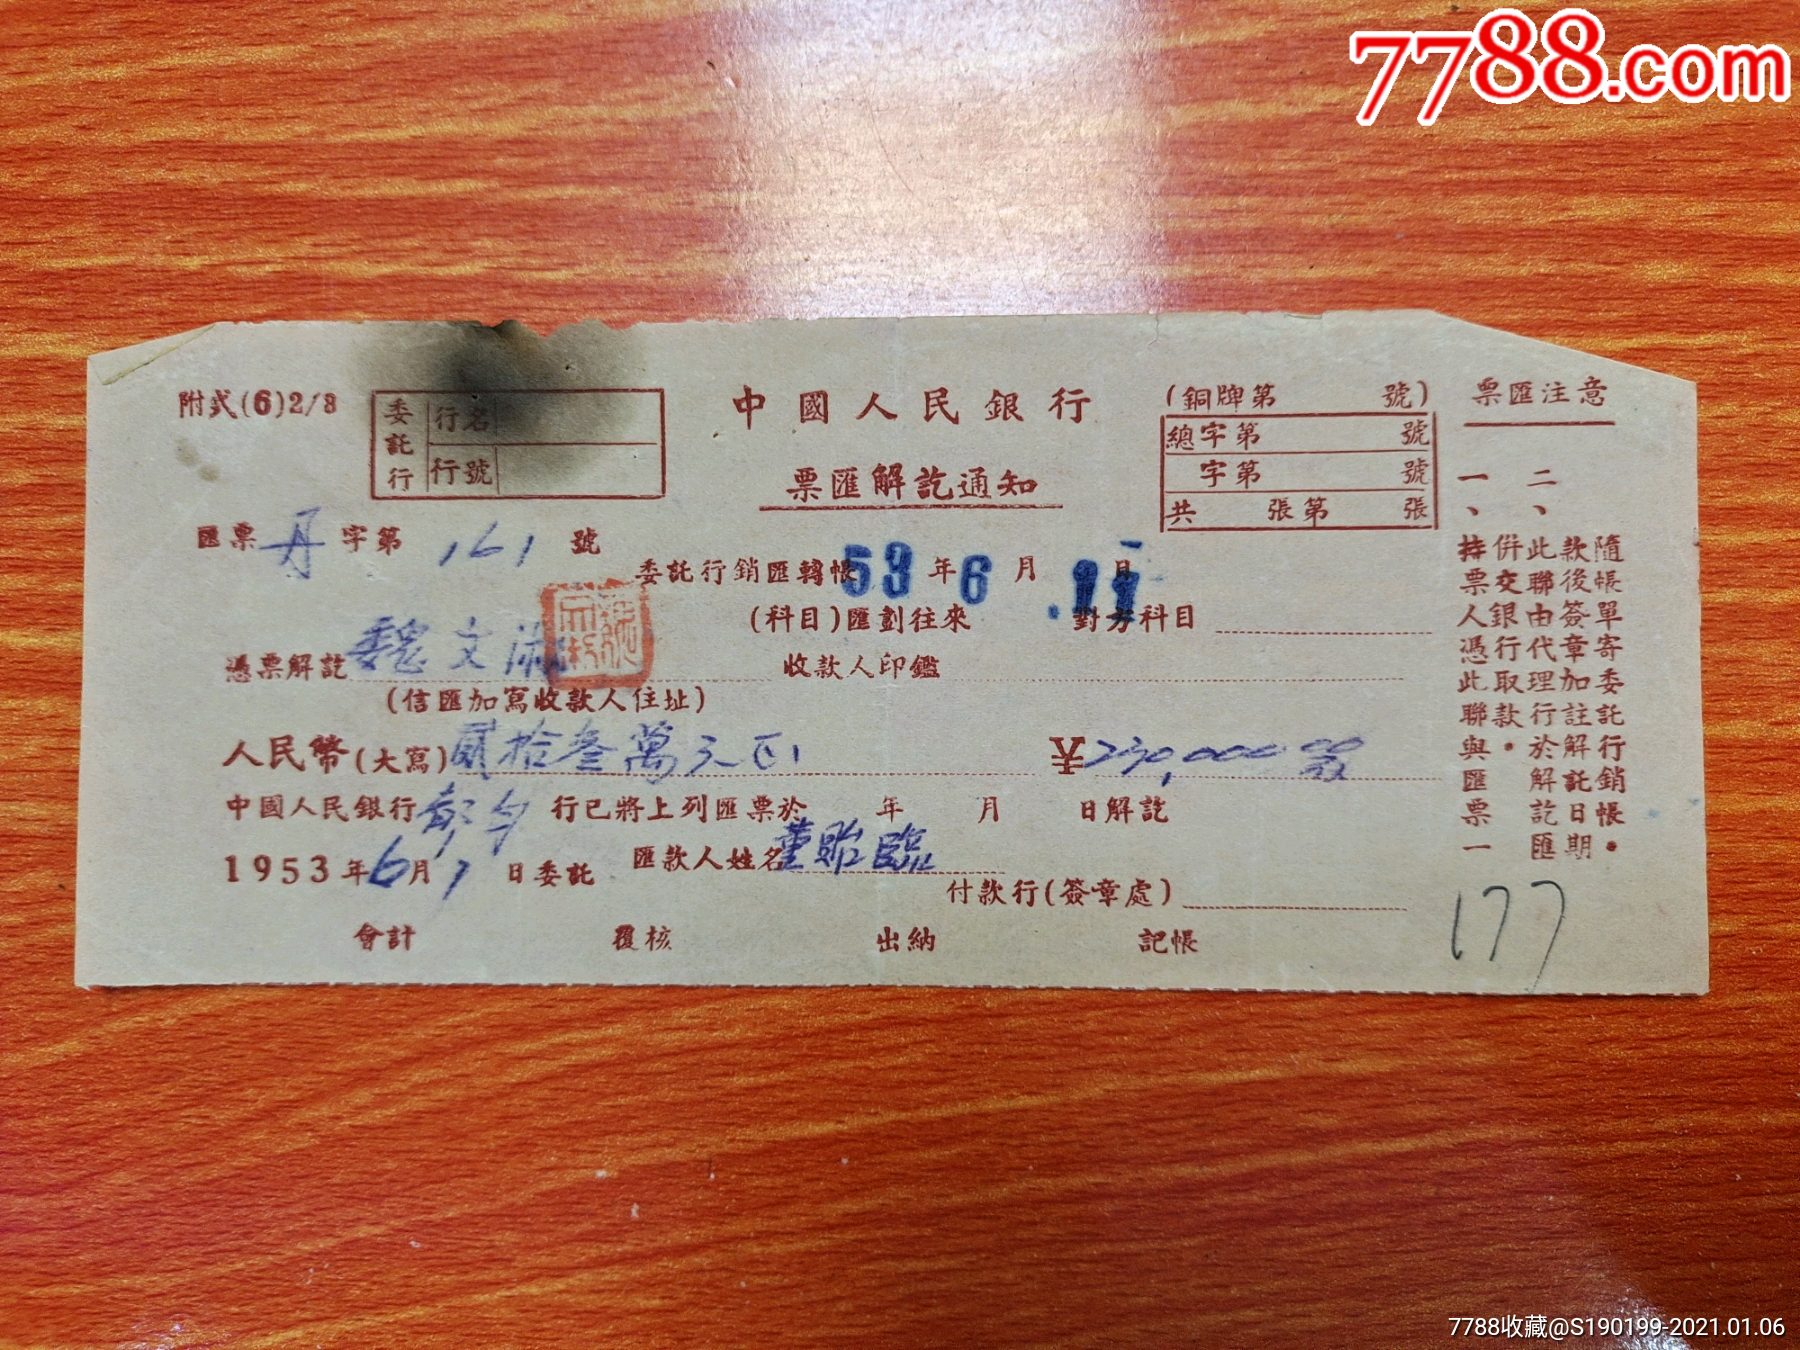 7788.com
附式(6)2/8
委託行
行名
行號
中國人民銀行
票匯解訖通知
(銅牌第 號)
總字第 號
字第 號
共 張第 張
票匯注意
一、持票人憑此聯與匯票一
併交銀行取款。
二、此聯由代理行於解訖匯
款後簽章加註解訖日期
隨帳單寄委託行銷帳。
匯票 丹 字第 161 號
委託行銷匯轉帳 53 年 6 月 11 日
(科目)匯劃往來 對方科目
憑票解訖 魏文 收款人印鑑
(信匯加寫收款人住址)
人民幣(大寫) 貳拾叁萬元正 230,000.00
中國人民銀行 行已將上列匯票於 年 月 日解訖
1953年6月 日委託 匯款人姓名 董貽臨
付款行(簽章處)
會計 覆核 出納 記帳
177
7788收藏@S190199-2021.01.06